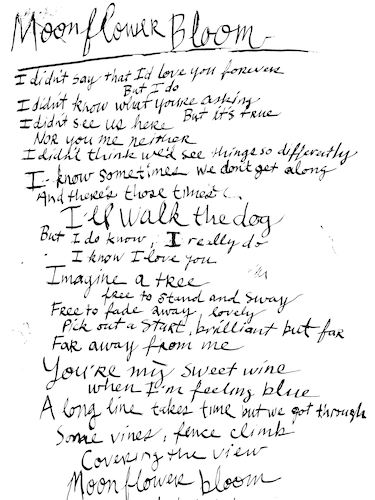 Moonflower Bloom
I didn't say that I'd love you forever
But I do
I didn't know what you're asking
But it's true
I didn't see us here
Nor you me neither
I didn't think we'd see things so differently
I know sometimes we don't get along
And there's those times...
I'll walk the dog
But I do know, I really do
I know I love you
Imagine a tree
free to stand and sway
Free to fade away, lovely
Pick out a start, brilliant but far
Far away from me
You're my sweet wine
when I'm feeling blue
A long line takes time but we got through
Some vines, fence climb
Covering the view
Moonflower bloom